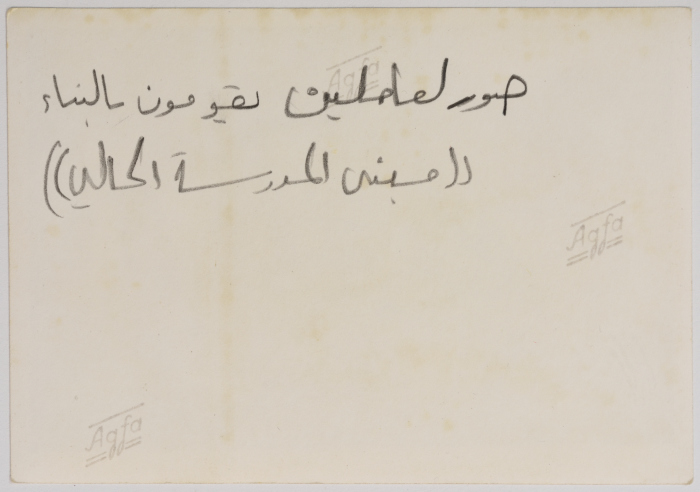 صور لعاملين يقومون بالبناء
((مبنى المدرسة الحالي))
Agfa
Agfa
Agfa